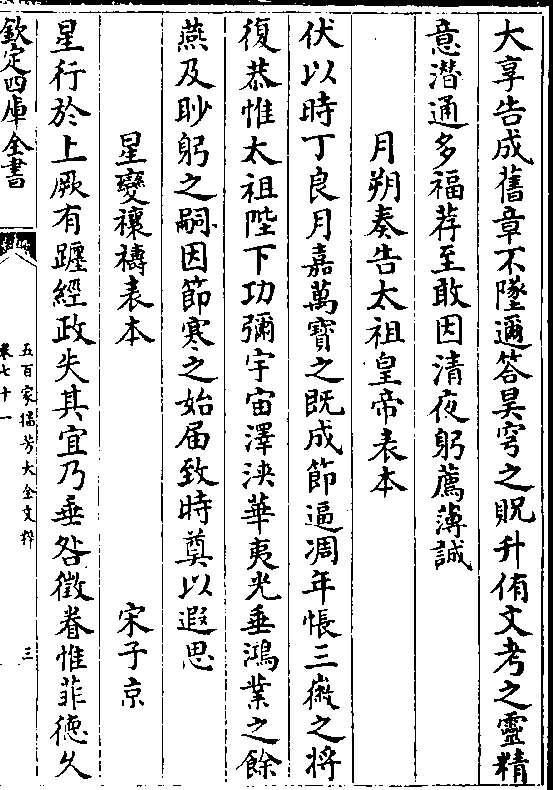 大享告成舊章不墜邇答昊穹之貺升侑文考之靈精
意潛通多福荐至敢因清夜躬薦薄誠
月朔奏告太祖皇帝表本
伏以時丁良月嘉萬寶之既成節逼凋年悵三微之將
復恭惟太祖陛下功彌宇宙澤浹華夷光垂鴻業之餘
燕及眇躬之嗣因節寒之始届致時奠以遐思
星變禳禱表本 宋子京
星行於上厥有躔經政失其宜乃垂咎徵眷惟菲德久
欽定四庫全書
五百家播芳大全文粹
卷七十一
三